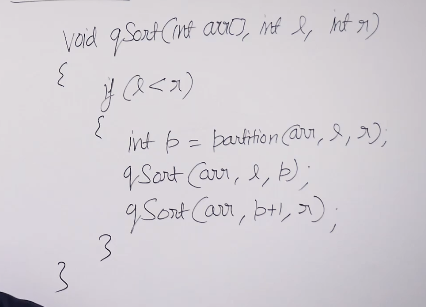 void qSort(int arr[], int l, int r)
{
if (l<r)
{
int p = partition(arr, l, r);
qSort(arr, l, p);
qSort(arr, p+1, r);
}
}